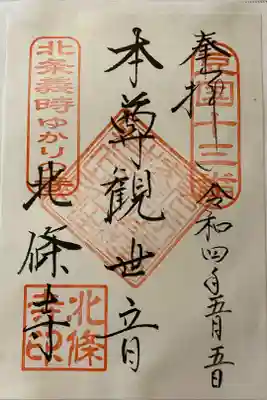 奉拝
令和四年五月五日
豆国十三番
本尊観世音
北条義時ゆかりの寺
北條寺
北條寺印